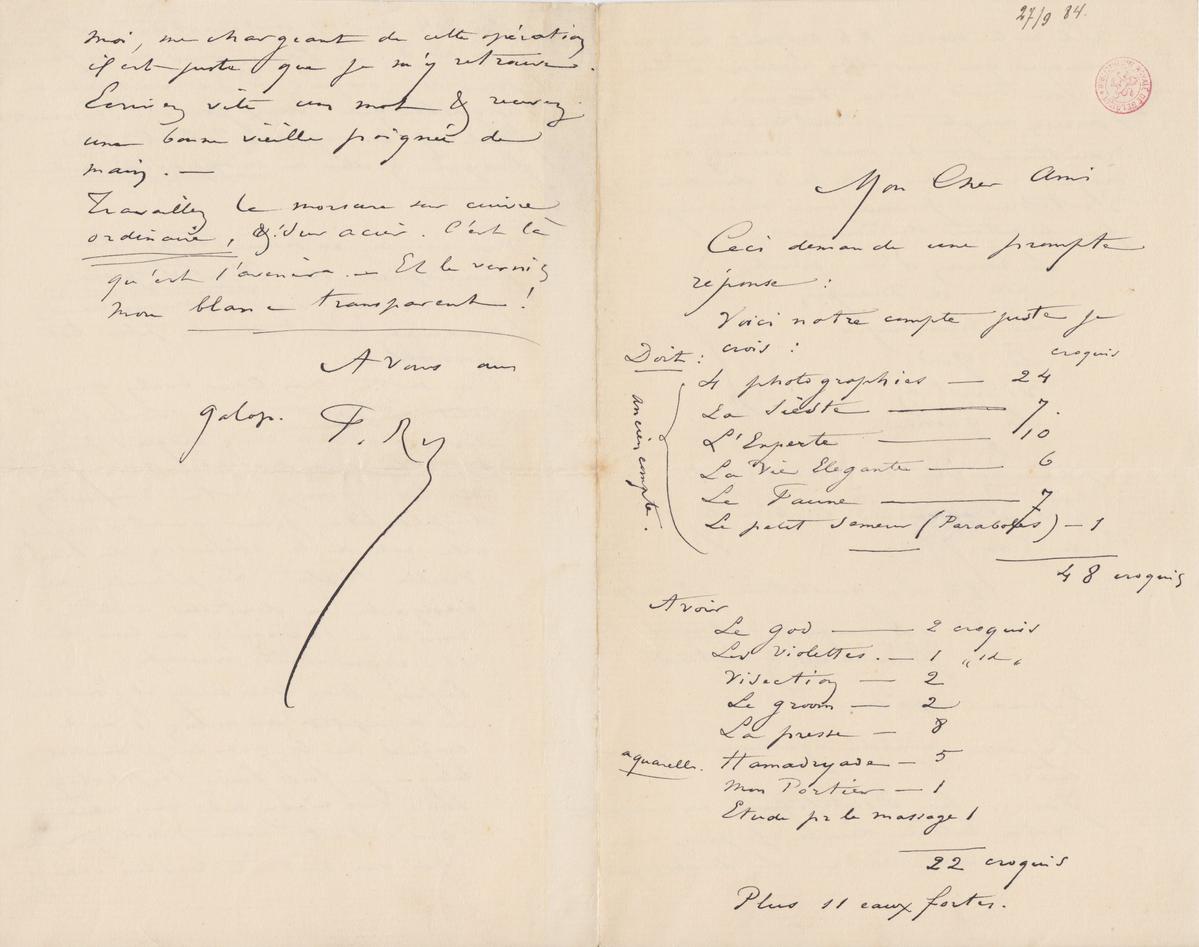 moi, me chargeant de cette opération
il est juste que je m'y retrouve.
Ecrivez vite un mot & recevez
une bonne vieille poignée de
main. —
Travaillez la morsure sur cuivre
ordinaire, & sur acier. C'est là
qu'est l'avenir. — Et le vernis
mou blanc transparent !
A Vous au
galop. F. R
27/9 84.
Mon Cher Ami
Ceci demande une prompte
réponse :
Voici notre compte juste je
crois :
Doit :
croquis
ancien compte.
4 photographies — 24
La Sièste — 7.
L'Experte — 10
La Vie Elegante — 6
Le Faune — 7
Le petit Semeur (Paraboles) — 1
48 croquis
Avoir
Le god — 2 croquis
Les Violettes. — 1 " id "
Visection — 2
Le groom — 2
La presse — 8
aquarelle. Hamadryade — 5
Mon Portier — 1
Etude pr le massage 1
22 croquis
Plus 11 eaux fortes.